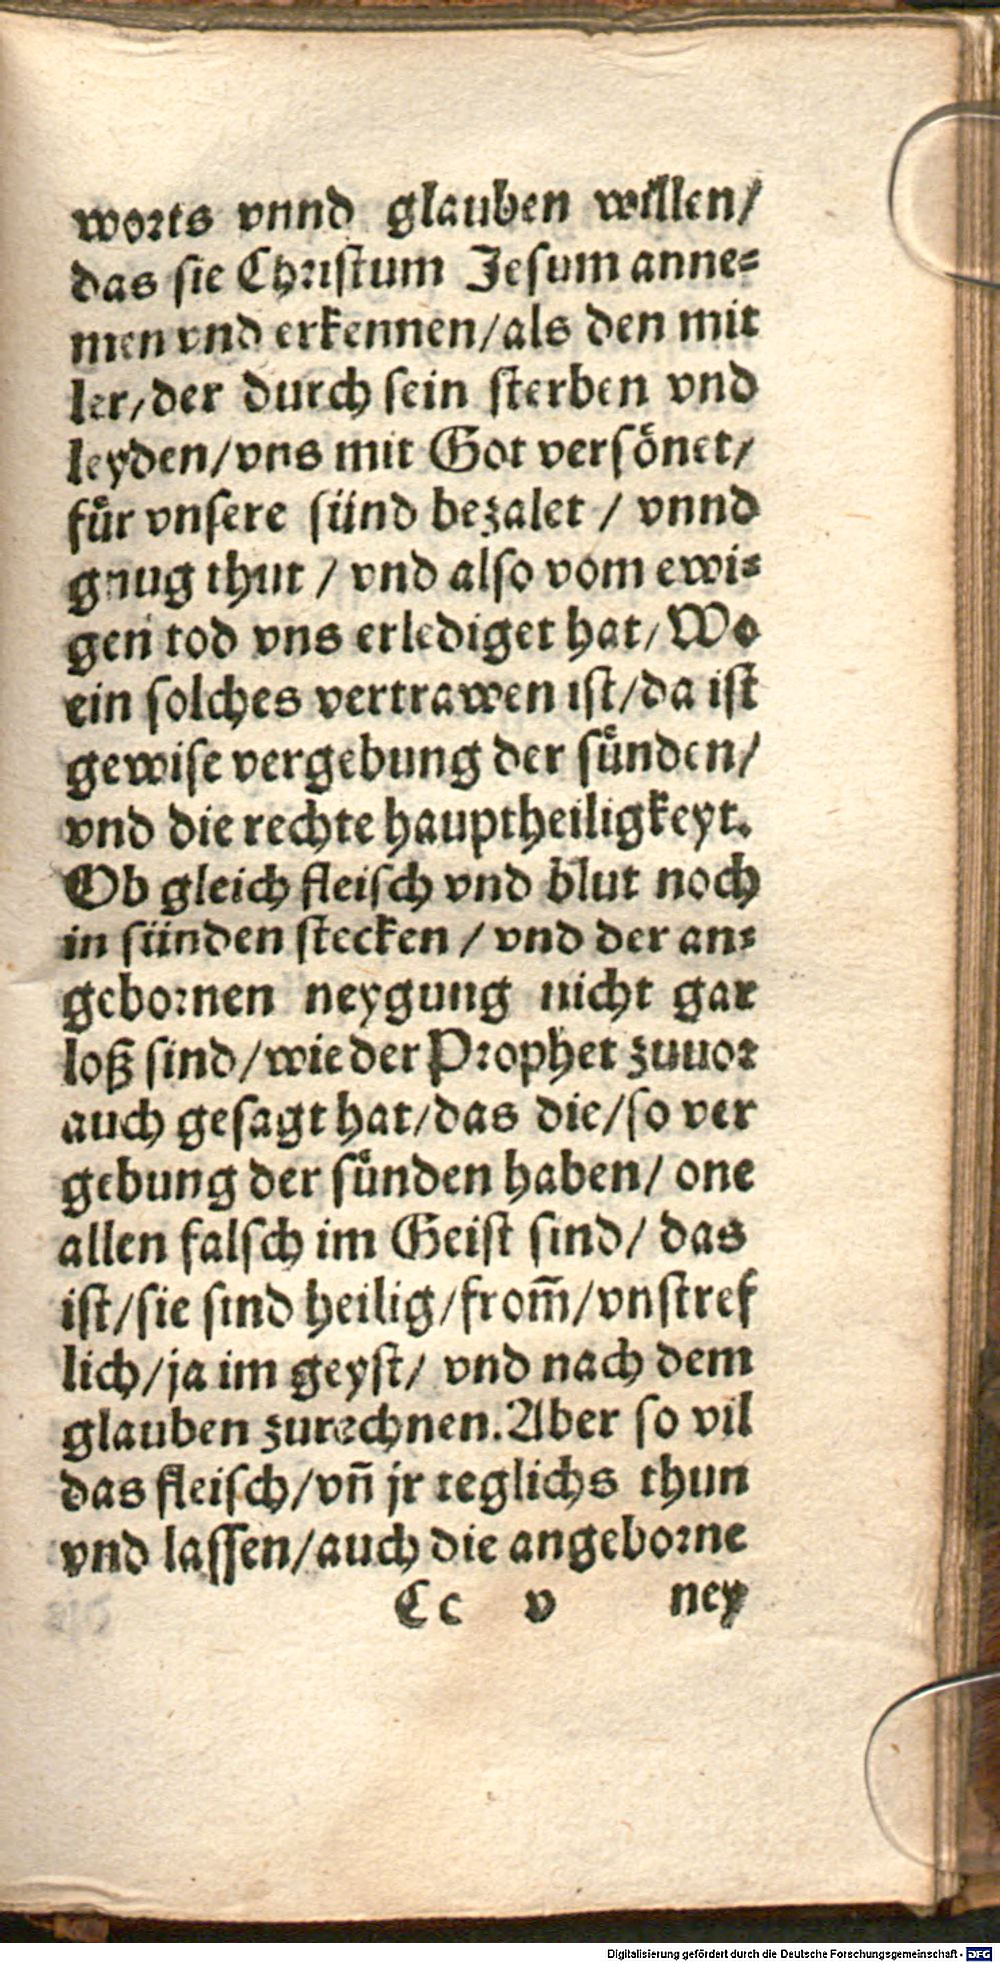 worts vnnd glauben willen/
das sie Christum Jesum anne⸗
men vnd erkennen/als den mit
ler/der durch sein sterben vnd
leyden/vns mit Got versönet/
für vnsere sünd bezalet / vnnd
gnug thut / vnd also vom ewi⸗
gen tod vns erlediget hat/Wo
ein solches vertrawen ist/da ist
gewise vergebung der sünden/
vnd die rechte hauptheiligkeyt.
Ob gleich fleisch vnd blut noch
in sünden stecken / vnd der an⸗
gebornen neygung nicht gar
loß sind/wie der Prophet zuuor
auch gesagt hat/das die/so ver
gebung der sünden haben/ one
allen falsch im Geist sind/ das
ist/sie sind heilig/from̃/vnstref
lich/ja im geyst/ vnd nach dem
glauben zurechnen.Aber so vil
das fleisch/vñ jr teglichs thun
vnd lassen/auch die angeborne
Cc v ney
Digitalisierung gefördert durch die Deutsche Forschungsgemeinschaft - DFG